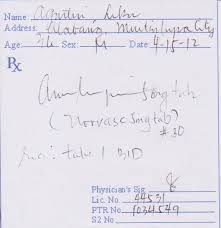 Name:
Address: Alabang, Muntinlupa City
Age: Sex: M Date: 4-15-12
Rx
5mg tab
(Norvasc 5mg tab)
#30
Sig: take 1 BID
Physician's Sig.
Lic No. 44531
PTR No. 1034549
S2 No.